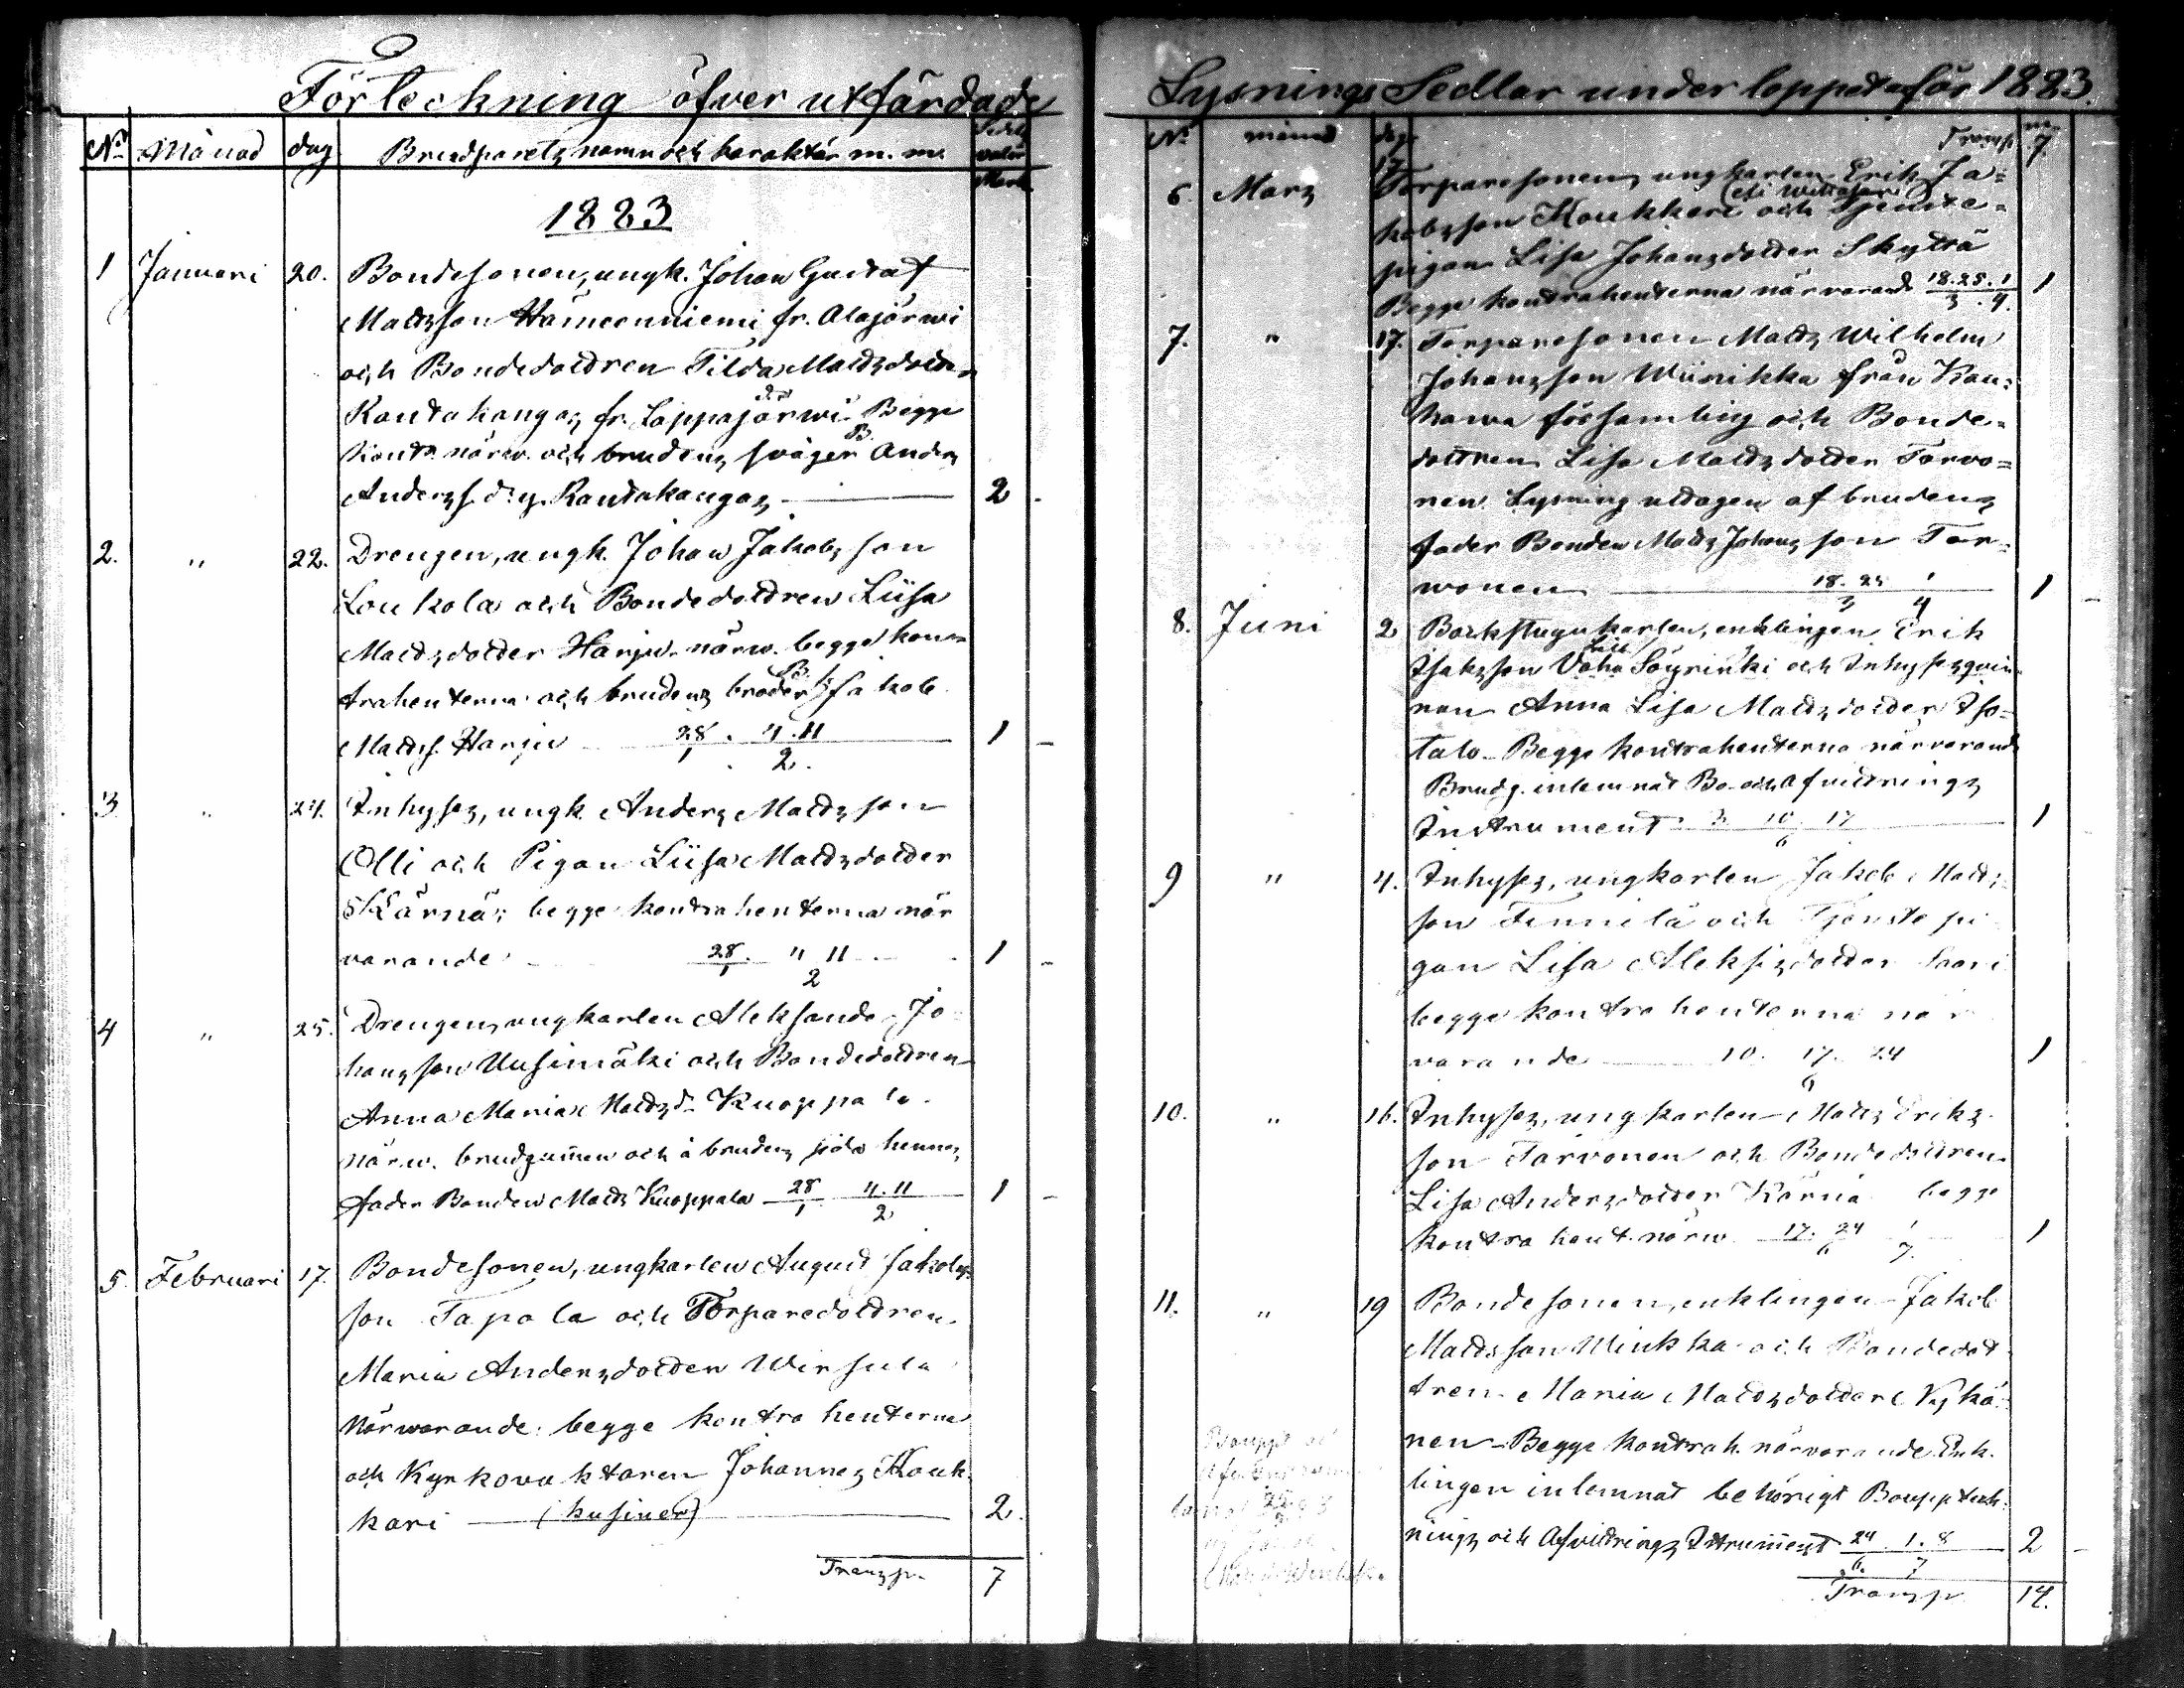 Förteckning öfver utfärdade
No Månad dag Brudparets namn och karaktär m.m. Mark
1883
1 Januari 20. Bondesonen, ungk. Johan Gustaf
Mattsson Hämeenniemi fr. Alajärwi
och Bondedottren Tilda Mattsdotter
Rantakangas fr. Lappajärwi. Begge
Kontr. närw. och brudens svåger Anders
Anders s. d:y. Rantakangas 2 -
2. " 22. Drengen, ungk. Johan Jakobsson
Loukola och Bondedottren Liisa
Mattsdotter Harju. närw. begge kon-
trahenterna och brudens broder Jakob
Matts s. Harju 28/1 . 4.11/2. 1 -
3 " 24. Inhyses, ungk. Anders Mattsson
Olli och Pigan Liisa Mattsdotter
Kärnä; begge kontrahenterna när
varande 28/1 . " 11/2 1 -
4 " 25. Drengen, ungkarlen Aleksander Jo
hansson Uusimäki och Bondedottren
Anna Maria Mattsd. Kuoppala.
närw. brudgummen och å brudens sida hennes
fader Bonden Matts Kuoppala 28/1 4.11/2 1 -
5. Februari 17. Bondesonen, ungkarlen August Jakobs
son Tapola och Torparedottren
Maria Andersdotter Wirsula
Närwarande: begge kontrahenterna
och Kyrkovaktaren Johannes Kouk
kari (kusiner) 2.
Transp. 7
Lysnings Sedlar under loppet af år 1883.
No månad dag Transp. 7
6. Mars 17 Torparesonen, ungkarlen Erik Ja-
kobsson Koukkari och Tjenste-
pigan Lisa Johansdotter Skyttä
Begge kontrahenterna närvarand 18.25/3 . 1/4. 1
7. " 17. Torparesonen Matts Wilhelm
Johansson Wiinikka från Kau-
hawa församling och Bonde-
dottren Lisa Mattsdotter Tarvo-
nen. Lysning uttagen af brudens
fader Bonden Matts Johansson Tar-
wonen 18.25/3 1/4 1 -
8. Juni 2 Backstugukarlen, enklingen Erik
Isaksson Vähä Säyrinki och Inhysesqvin
nan Anna Lisa Mattsdotter Iso-
talo. Begge kontrahenterna närvarand
Brudg. inlemnat Bo- och afvittrings
Instrument 3. 10. 17/6 1
9 " 4. Inhyses, ungkarlen Jakob Matts
son Finnilä och Tjenstepi
gan Lisa Aleksisdotter Saari
begge kontrahenterna när
varande 10. 17. 24/6 1
10. " 16. Inhyses, ungkarlen Matts Eriks
son Tarvonen och Bondedottren
Lisa Andersdotter Kärnä begge
kontrahent. närw. 17. 24/6 1/7. 1
11. " 19 Bondesonen, enklingen Jakob
Mattsson Winkka och Bondedot
tren Maria Mattsdotter Nykä-
nen. Begge kontrah. närvarande. Enk-
lingen inlemnat behörigt Bouppteck-
nings och Afvittrings Instrument 24/6. 1.8/7 2 -
Transp 14.